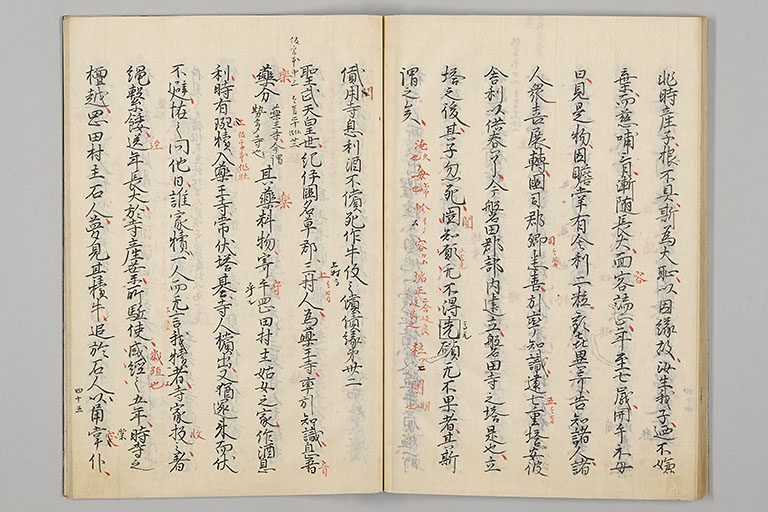 非時産子根不具斯為大恥以因縁故汝生我子迺不嫌
棄而慈哺育漸随長大面容端正年至七歳開手示母
曰見是物因瞻掌有舎利二粒歓喜異奇告知諸人諸
人衆喜展轉國司郡卿悉喜引率知識建七重塔安彼
舎利以供養了今磐田郡部内建立磐田寺之塔是也立
塔之後其子忽死因知願无不得先願无不果者其斯
謂之矣
貸用寺息利酒不償死作牛役之償債縁第卅二
聖武天皇世紀伊國名草郡三上村人為藥王寺率引知識息晋
藥分藥王寺今謂勢多寺也其藥料物寄乎岡田村主姑女之家作酒息
利時有斑犢入藥王寺常伏塔基寺人擯出又猶還来而伏
不避恠之問他曰誰家犢一人而无言我犢者寺家投之着
縄繋餧送年長大於寺産業所駈使盛経之五年時寺之
檀越岡田村主石人夢見其犢牛追於石人以角棠仆
四十五